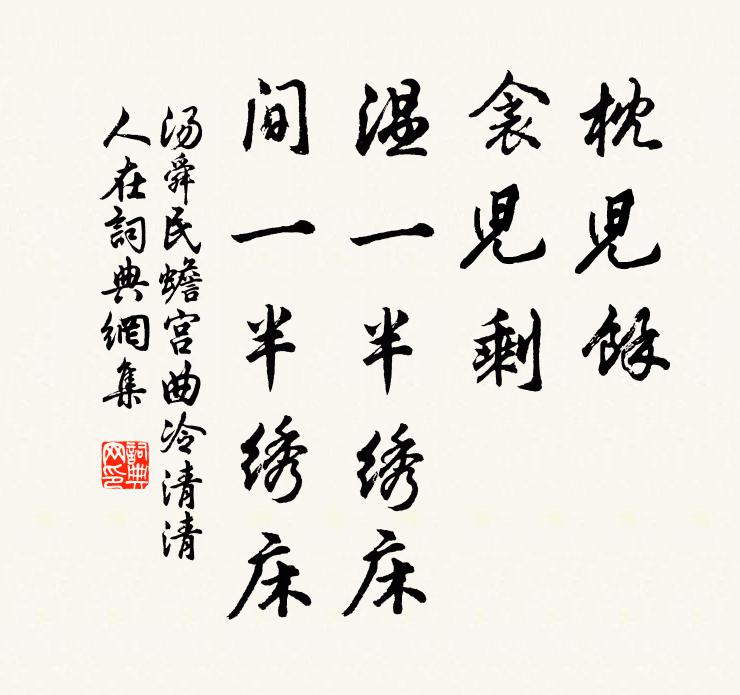 枕児餘
衾児剩
温一半绣床
间一半绣床
汤舜民蟾宫曲冷清清
人在詞典網集
詞典网印